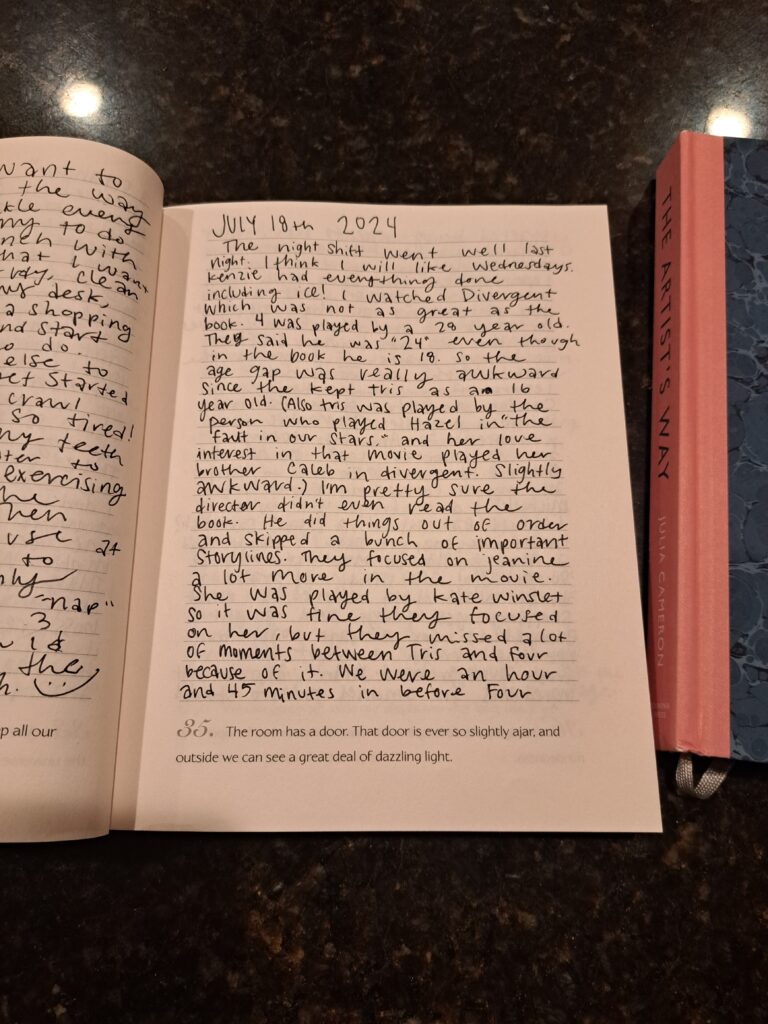 want to
the way
every
to do
with
that I want
clean
desk,
a shopping
and start
do.
else to
get started
crawl
so tired!
my teeth
to
exercising
the
when
at
to
"nap"
3
the
p all our
JULY 18th 2024
The night shift went well last
night. I think I will like Wednesdays.
Kenzie had everything done
including ice! I watched Divergent
which was not as great as the
book. 4 was played by a 28 year old.
They said he was "24" even though
in the book he is 18. So the
age gap was really awkward
since the kept Tris as a 16
year old. (Also Tris was played by the
person who played Hazel in "the
fault in our stars," and her love
interest in that movie played her
brother Caleb in divergent. Slightly
awkward.) I'm pretty sure the
director didn't even read the
book. He did things out of order
and skipped a bunch of important
storylines. They focused on jeanine
a lot more in the movie.
She was played by Kate Winslet
so it was fine they focused
on her, but they missed a lot
of moments between Tris and Four
because of it. We were an hour
and 45 minutes in before Four
35. The room has a door. That door is ever so slightly ajar, and
outside we can see a great deal of dazzling light.
THE ARTIST'S WAY
JULIA CAMERON